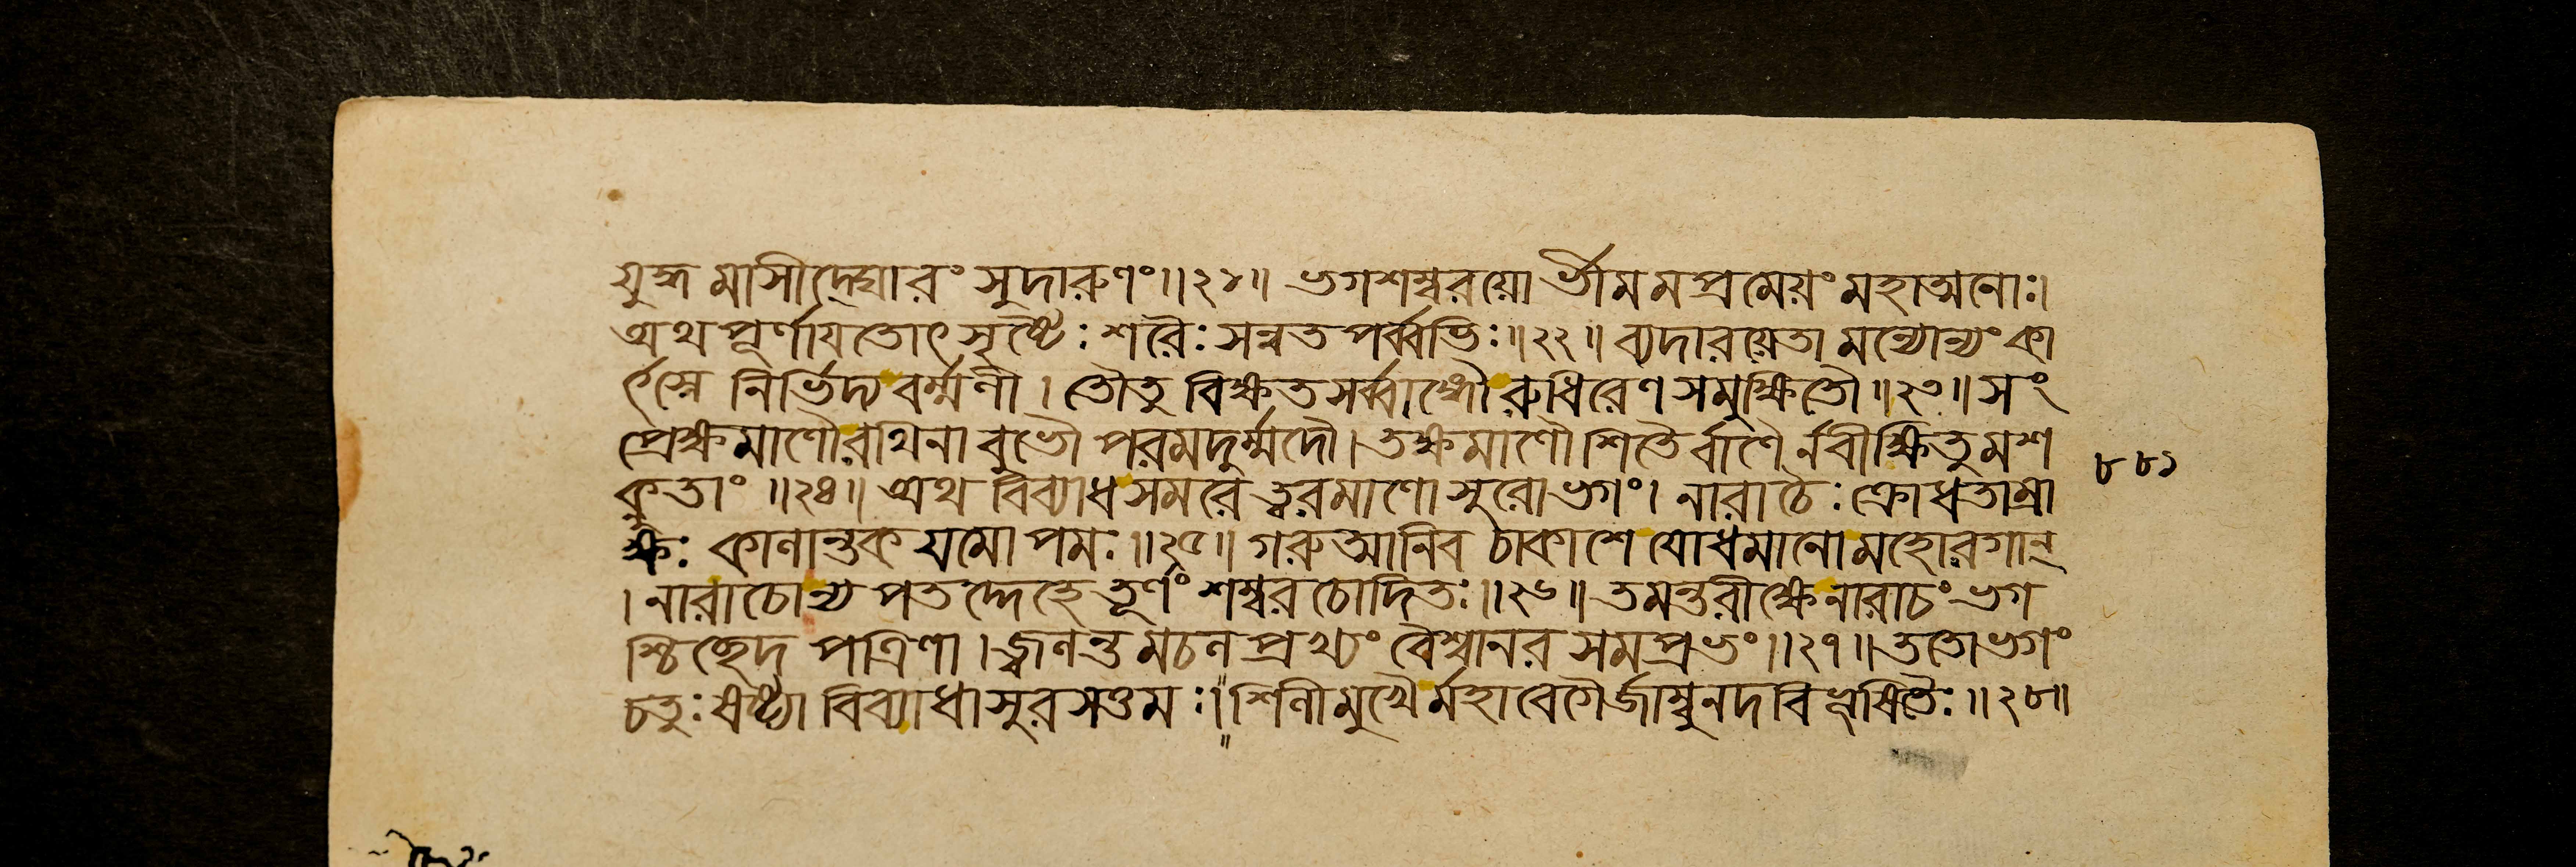 যুদ্ধমাসীদ্ঘোরং সুদারুণং॥২১॥ ভগশম্বরয়ো র্ভীমমপ্রমেয়ং মহাত্মনোঃ।
অথ পূর্ণায়তোৎসৃষ্টৈঃ শরৈঃ সন্নতপর্ব্বভিঃ॥২২॥ ব্যদারয়েতামন্যোন্যং কা
র্ৎস্নে নির্ভিদ্য বর্ম্মণী। তৌতু বিক্ষতসর্ব্বাঙ্গৌ রুধিরেণ সমুক্ষিতৌ॥২৩॥ সং
প্রেক্ষমাণৌ রথিনাবুভৌ পরমদুর্ম্মদৌ। তক্ষমাণৌ শিতৈর্বাণৈ র্নবীক্ষিতুমশ
ক্নুতাং॥২৪॥ অথ বিব্যাধ সমরে ত্বরমাণোসুরোভগং। নারাচৈঃ ক্রোধতাম্রা
ক্ষঃ কালান্তকযমোপমঃ॥২৫॥ গরুত্মানিব চাকাশে যোধমানো মহোরগান্
। নারাচোন্যপতদ্দেহে তূর্ণং শম্বরচোদিতঃ॥২৬॥ তমন্তরীক্ষে নারাচং ভগ
শ্চিচ্ছেদ পত্রিণা। জ্বলন্তমচলপ্রখ্যং বৈশ্বানরসমপ্রভং॥২৭॥ ততোভগং
চতুঃষষ্ট্যা বিব্যাধাসুরসত্তমঃ। শিলীমুখৈর্মহাবেগৈর্জাম্বুনদবিভূষিতৈঃ॥২৮॥
৮৮১